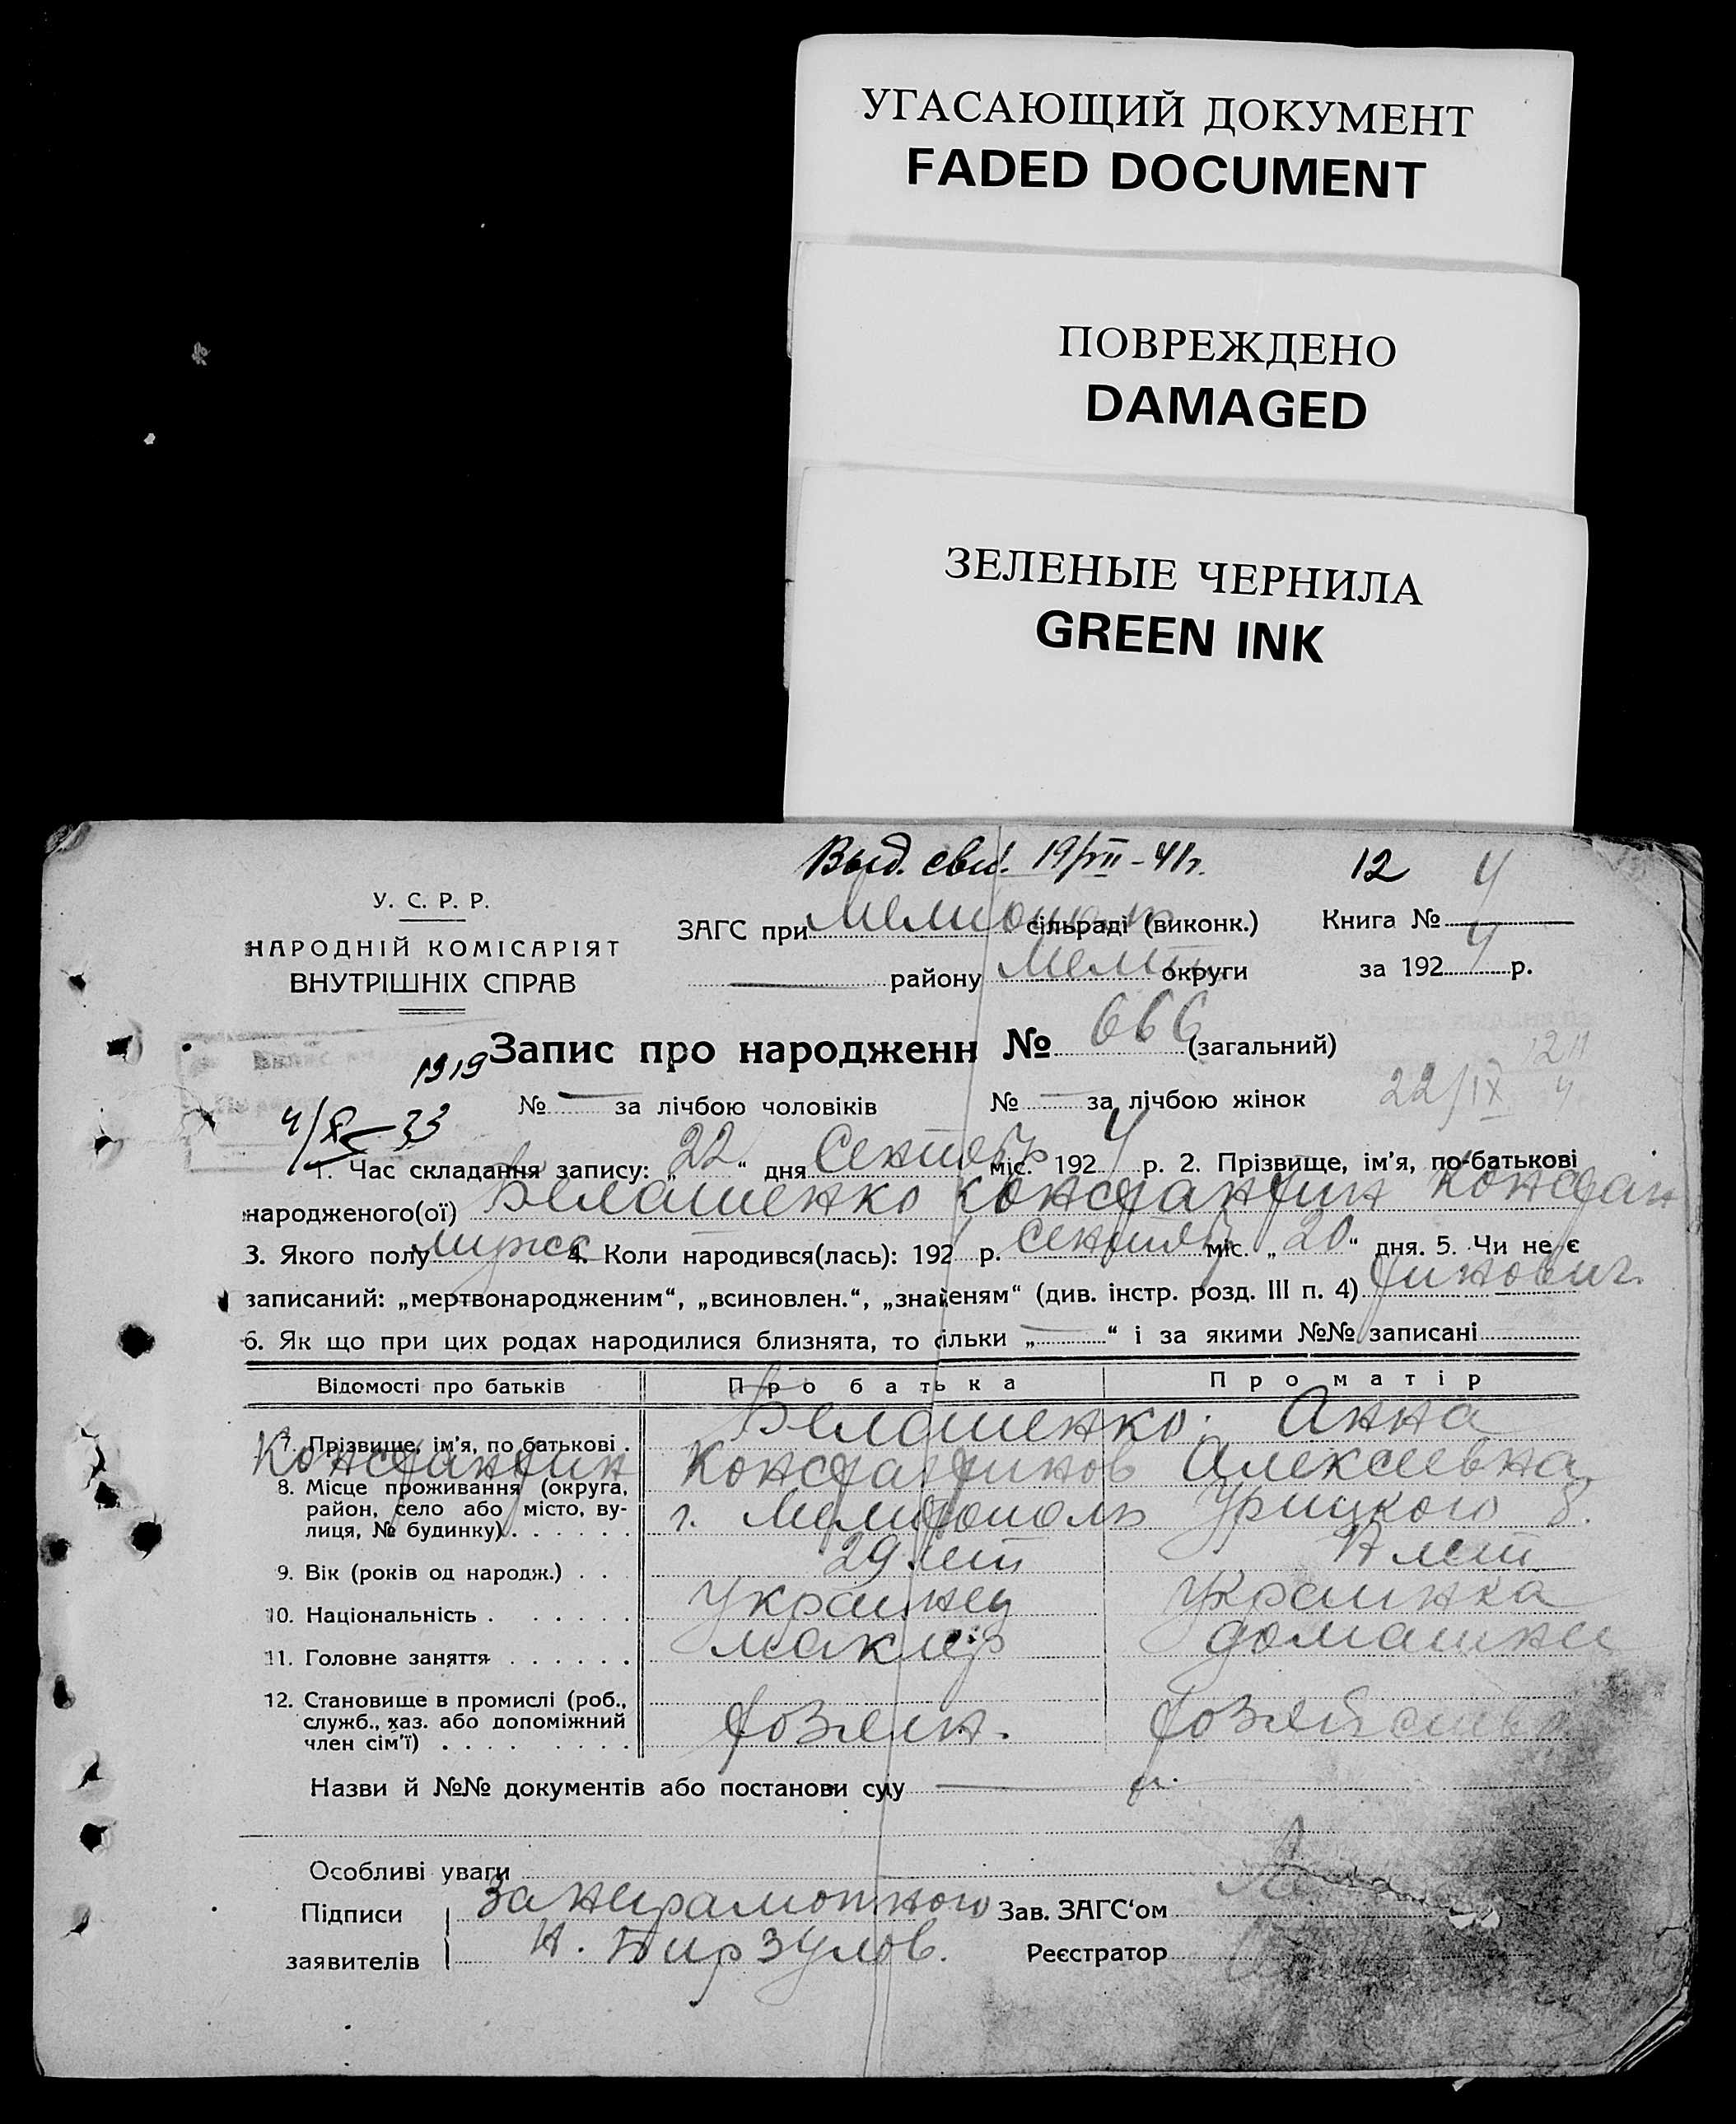 УГАСАЮЩИЙ ДОКУМЕНТ
FADED DOCUMENT
ПОВРЕЖДЕНО
DAMAGED
ЗЕЛЕНЫЕ ЧЕРНИЛА
GREEN INK
Выд. сви. 19/VII-41г. 12
У. С. Р. Р.
НАРОДНІЙ КОМІСАРІЯТ
ВНУТРІШНІХ СПРАВ
ЗАГС при Мелитополь сільраді (виконк.) Книга № 4
району Мелит. округи за 1924 р.
Запис про народженн № 666 (загальний)
1919
№ — за лічбою чоловіків № — за лічбою жінок 22/IX
4/IX-33
1. Час складання запису: „22“ дня Сентябр міс. 1924 р. 2. Прізвище, ім’я, по-батькові
народженого(ої) Белашенко Константин Констан
3. Якого полу мужс 4. Коли народився(лась): 192 р. сентябр міс. „20“ дня. 5. Чи не є
записаний: „мертвонародженим“, „всиновлен.“, „знайденям“ (див. інстр. розд. III п. 4) тинович.
6. Як що при цих родах народилися близнята, то сільки „—“ і за якими №№ записані
Відомості про батьків Про батька Про матір
7. Прізвище, ім’я, по батькові . Белашенко. Анна
Константин Константинов Алексеевна
8. Місце проживання (округа,
район, село або місто, ву-
лиця, № будинку) . . . . . . г. Мелитополь Урицкого 8.
9. Вік (років од народж.) . . . 29 лет лет
10. Національність . . . . . . Украинец Украинка
11. Головне заняття . . . . . . маклер домашнее
12. Становище в промислі (роб.,
служб., хаз. або допоміжний
член сім’ї) . . . . . . . . хозяин. хозяйство
Назви й №№ документів або постанови суду —
Особливі уваги
Підписи За неграмотного Зав. ЗАГС‘ом
заявителів Н. Бирзулов. Реєстратор